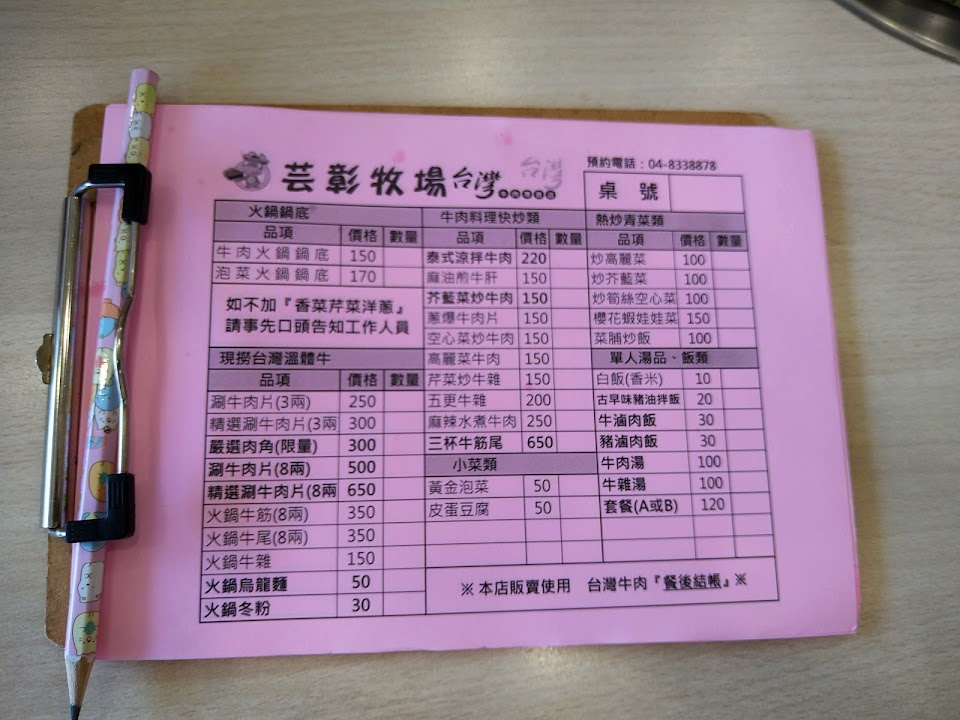 芸彰牧場台灣
台灣
預約電話：04-8338878
桌 號
火鍋鍋底
品項 價格 數量
牛肉火鍋鍋底 150
泡菜火鍋鍋底 170
如不加『香菜芹菜洋蔥』
請事先口頭告知工作人員
現撈台灣溫體牛
品項 價格 數量
涮牛肉片(3兩) 250
精選涮牛肉片(3兩 300
嚴選肉角(限量) 300
涮牛肉片(8兩) 500
精選涮牛肉片(8兩 650
火鍋牛筋(8兩) 350
火鍋牛尾(8兩) 350
火鍋牛雜 150
火鍋烏龍麵 50
火鍋冬粉 30
牛肉料理快炒類
品項 價格 數量
泰式涼拌牛肉 220
麻油煎牛肝 150
芥藍菜炒牛肉 150
蔥爆牛肉片 150
空心菜炒牛肉 150
高麗菜牛肉 150
芹菜炒牛雜 150
五更牛雜 200
麻辣水煮牛肉 250
三杯牛筋尾 650
小菜類
黃金泡菜 50
皮蛋豆腐 50
熱炒青菜類
品項 價格 數量
炒高麗菜 100
炒芥藍菜 100
炒筍絲空心菜 100
櫻花蝦娃娃菜 150
菜脯炒飯 100
單人湯品、飯類
白飯(香米) 10
古早味豬油拌飯 20
牛滷肉飯 30
豬滷肉飯 30
牛肉湯 100
牛雜湯 100
套餐(A或B) 120
※本店販賣使用 台灣牛肉『餐後結帳』※